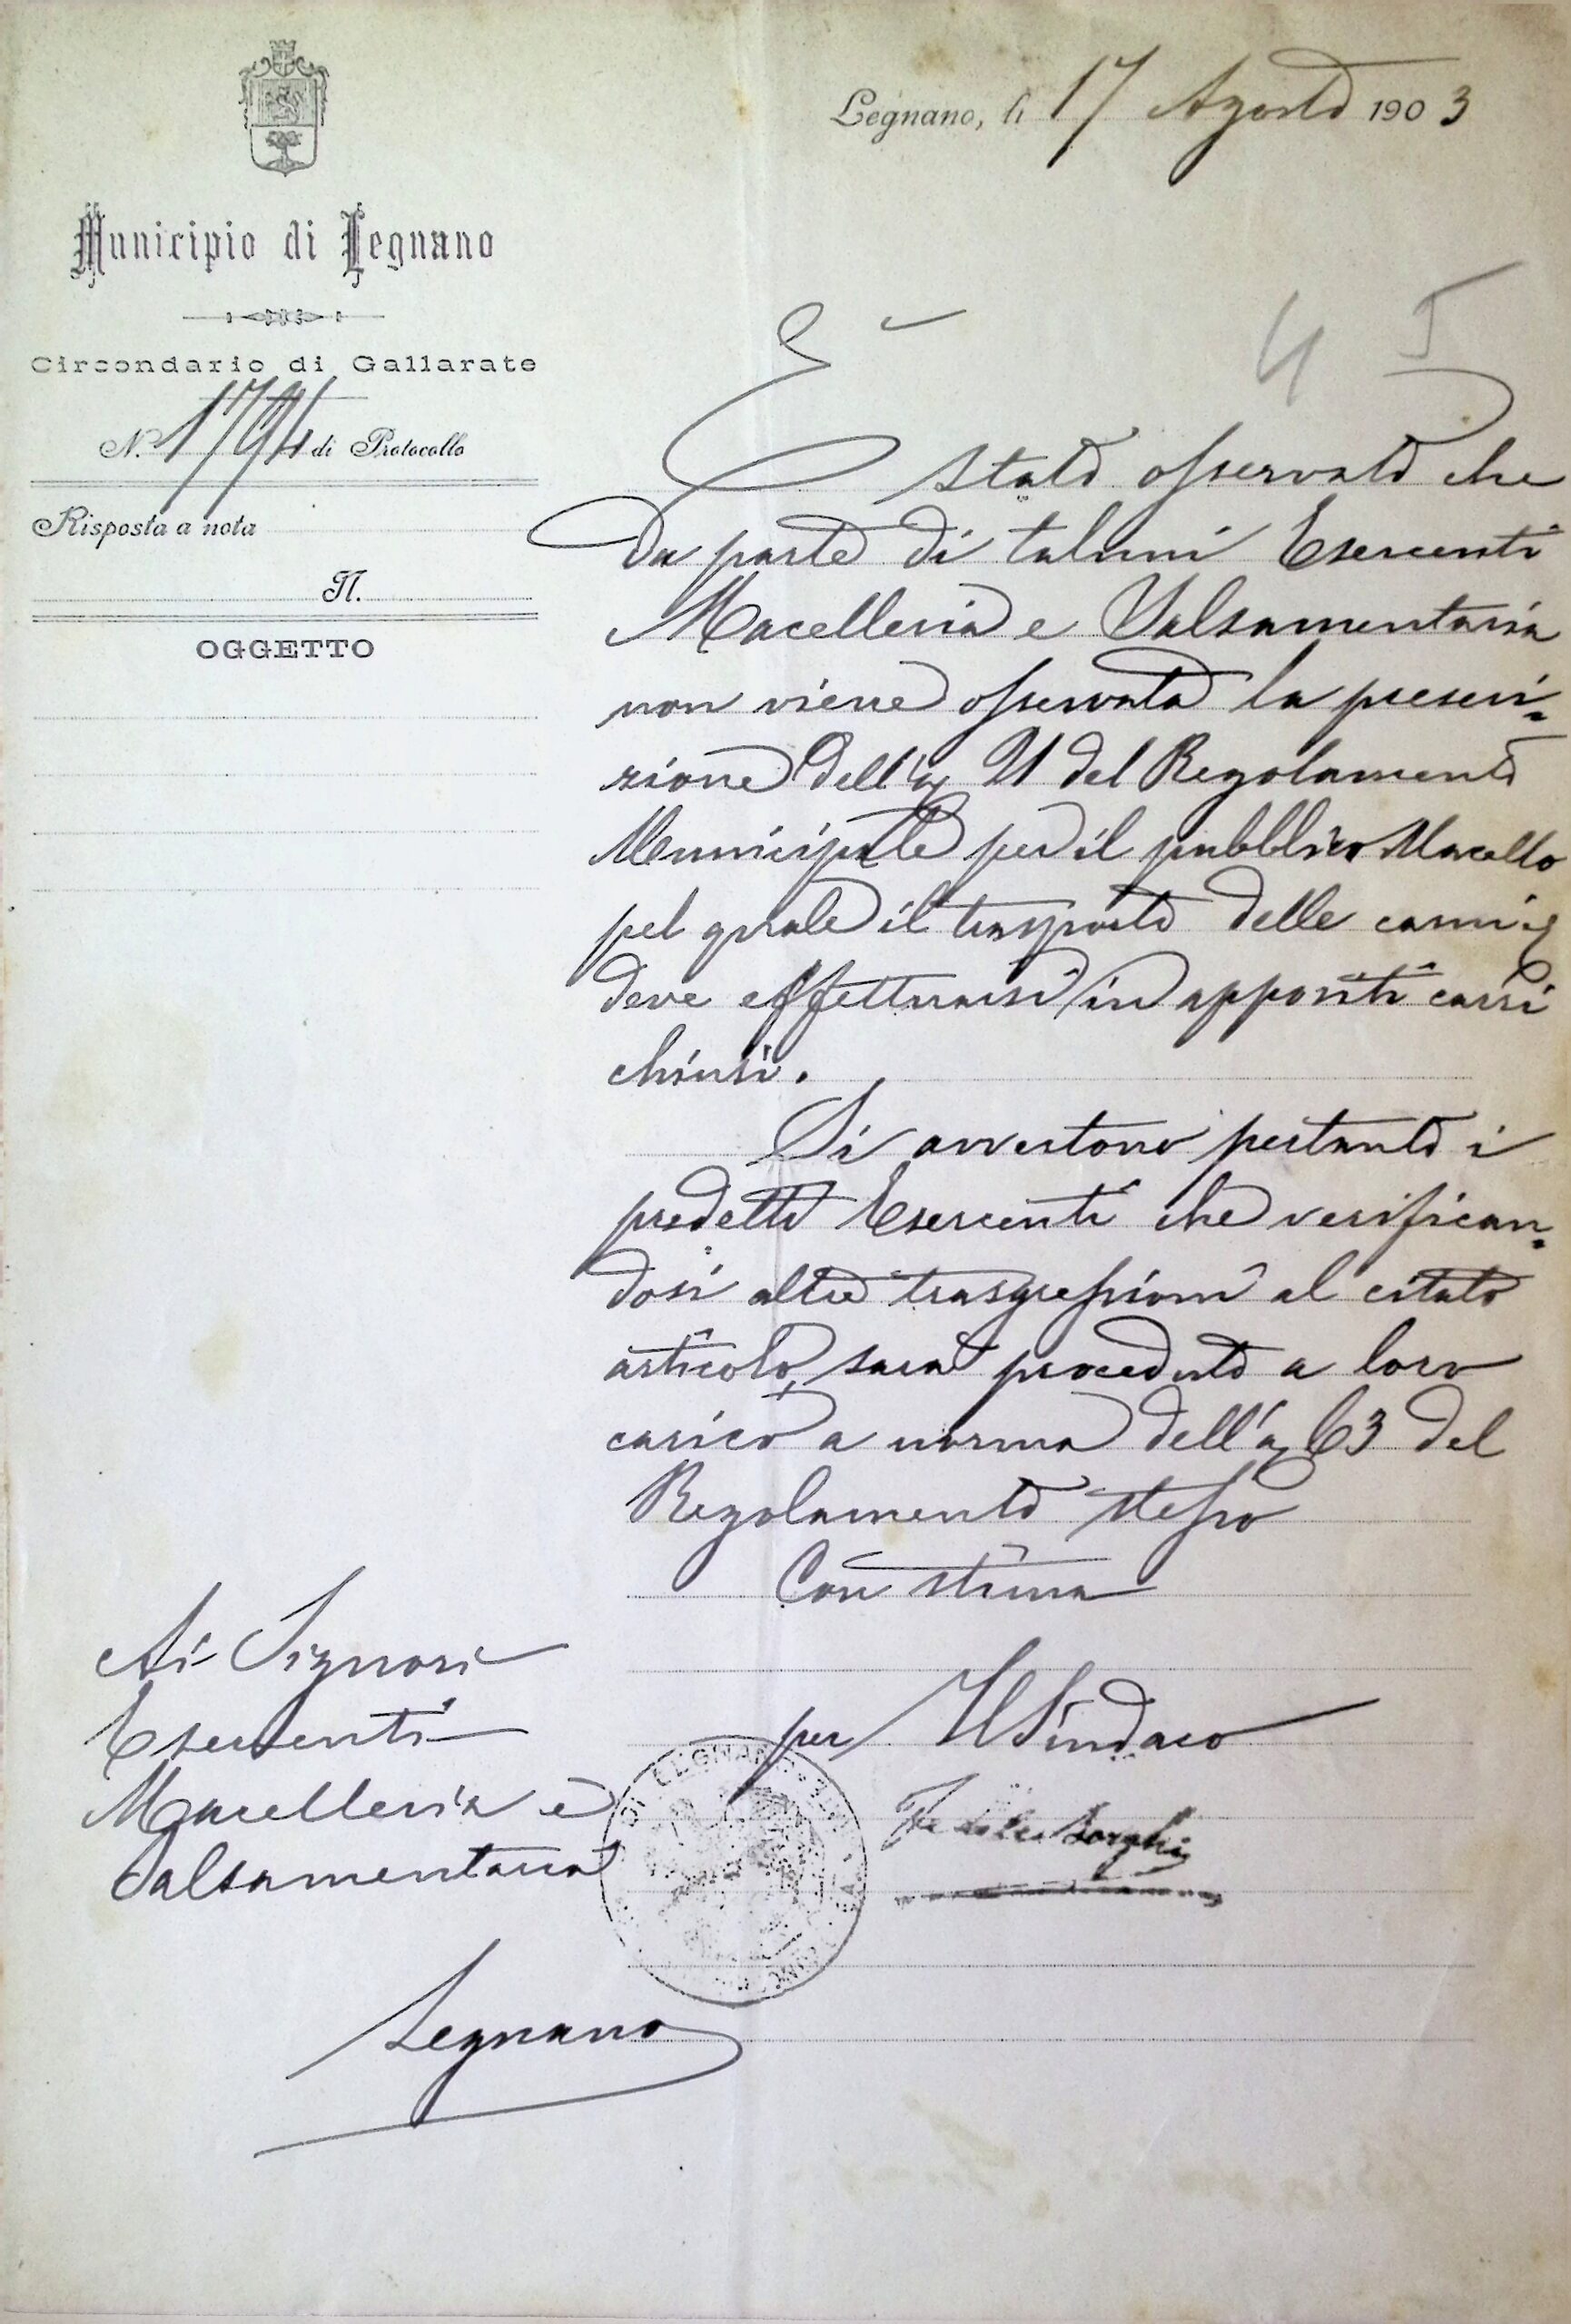 Legnano, li 17 Agosto 1903
Municipio di Legnano
Circondario di Gallarate
N. 1794 di Protocollo
Risposta a nota
N.
OGGETTO
4 5
È stato osservato che
da parte di taluni Esercenti
Macelleria e Salsamentaria
non viene osservata la prescri=
zione dell'art 21 del Regolamento
Municipale per il pubblico Macello
pel quale il trasporto delle carni
deve effettuarsi in appositi carri
chiusi.
Si avvertono pertanto i
predetti Esercenti che verifican=
dosi altre trasgressioni al citato
articolo, sarà proceduto a loro
carico a norma dell'art 63 del
Regolamento stesso
Con stima
per Il Sindaco
Fedele Borghi
Ai Signori
Esercenti
Macelleria e
Salsamentaria
Legnano
DI LEGNANO